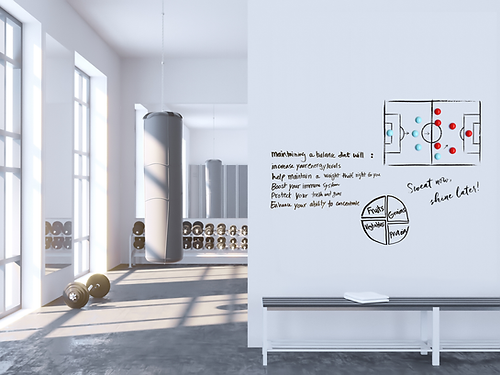 maintaining a balance diet will :
increase your energy levels
help maintain a weight that's right for you
Boost your immune system
Protect your teeth and gums
Enhance your ability to concentrate
Fruits
Grains
Vegetables
Protein
Sweat now,
shine later!